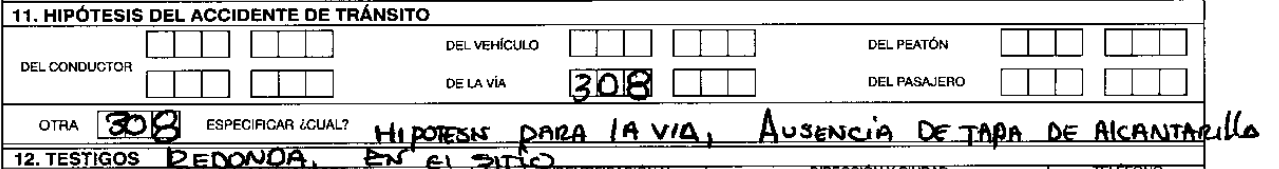 11. HIPÓTESIS DEL ACCIDENTE DE TRÁNSITO
DEL CONDUCTOR
DEL VEHÍCULO
DE LA VÍA 308
DEL PEATÓN
DEL PASAJERO
OTRA 308 ESPECIFICAR ¿CUAL? HIPOTESIS PARA LA VIA, AUSENCIA DE TAPA DE AlCANTARIlla
12. TESTIGOS REDONDA, EN El SITIO